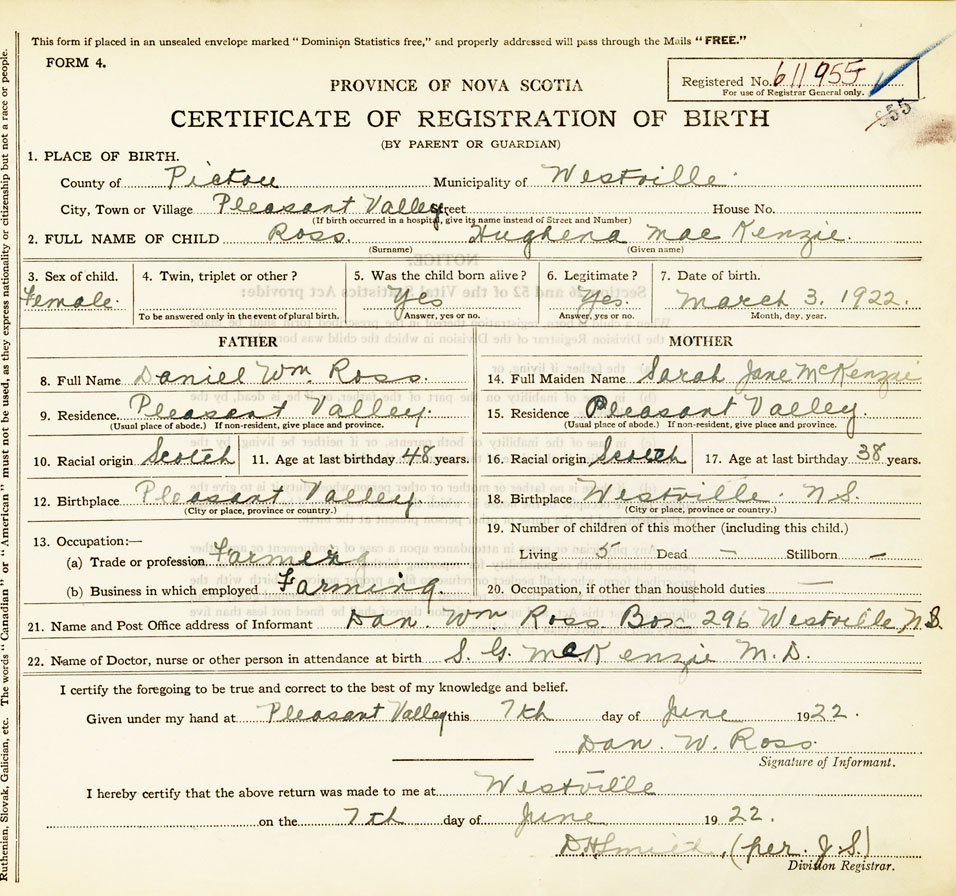 This form if placed in an unsealed envelope marked "Dominion Statistics free," and properly addressed will pass through the Mails "FREE."
FORM 4.
Registered No. 611955
For use of Registrar General only.
955
PROVINCE OF NOVA SCOTIA
CERTIFICATE OF REGISTRATION OF BIRTH
(BY PARENT OR GUARDIAN)
1. PLACE OF BIRTH.
County of Pictou Municipality of Westville
City, Town or Village Pleasant Valley Street House No.
(If birth occurred in a hospital, give its name instead of Street and Number)
2. FULL NAME OF CHILD Ross. Hughena Mac Kenzie.
(Surname) (Given name)
3. Sex of child. 4. Twin, triplet or other? 5. Was the child born alive? 6. Legitimate? 7. Date of birth.
Female. Yes Yes. March 3. 1922.
To be answered only in the event of plural birth. Answer, yes or no. Answer, yes or no. Month, day, year.
FATHER MOTHER
8. Full Name Daniel Wm. Ross. 14. Full Maiden Name Sarah Jane McKenzie
9. Residence Pleasant Valley. 15. Residence Pleasant Valley.
(Usual place of abode.) If non-resident, give place and province. (Usual place of abode.) If non-resident, give place and province.
10. Racial origin Scotch 11. Age at last birthday 48 years. 16. Racial origin Scotch 17. Age at last birthday 38 years.
12. Birthplace Pleasant Valley 18. Birthplace Westville. N.S.
(City or place, province or country.) (City or place, province or country.)
13. Occupation:— 19. Number of children of this mother (including this child.)
(a) Trade or profession Farming Living 5 Dead — Stillborn —
(b) Business in which employed Farming. 20. Occupation, if other than household duties —
21. Name and Post Office address of Informant Dan. Wm Ross Box 296 Westville, N.S.
22. Name of Doctor, nurse or other person in attendance at birth S. G. McKenzie M.D.
I certify the foregoing to be true and correct to the best of my knowledge and belief.
Given under my hand at Pleasant Valley this 7th day of June 1922.
Dan. W. Ross.
Signature of Informant.
I hereby certify that the above return was made to me at Westville
on the 7th day of June 1922.
D.H. Smith, (per J.S.)
Division Registrar.
Ruthenian, Slovak, Galician, etc. The words "Canadian" or "American" must not be used, as they express nationality or citizenship but not a race or people.